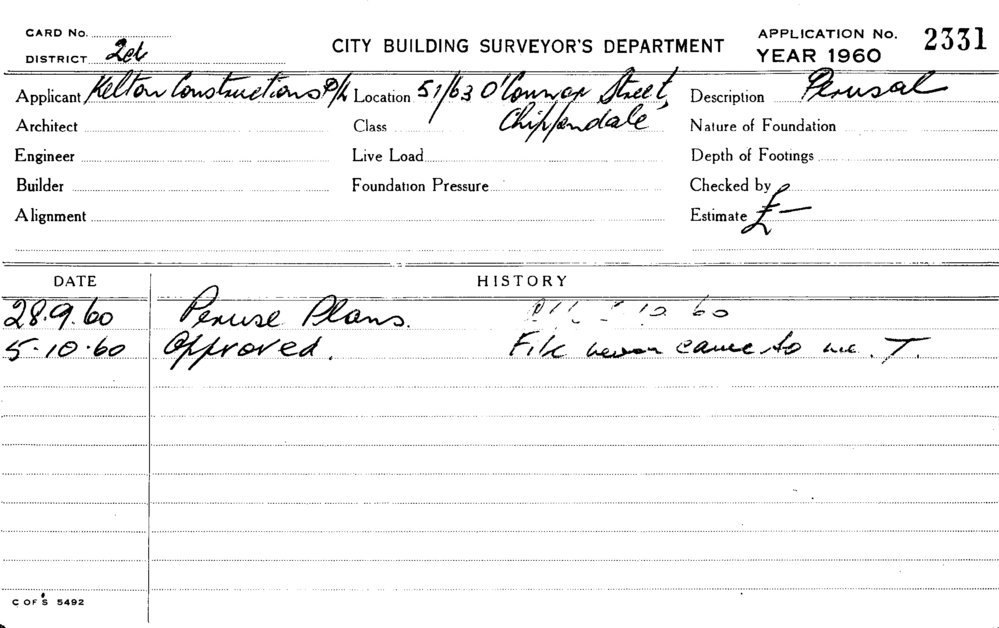 CARD No.
DISTRICT
CITY BUILDING SURVEYOR'S DEPARTMENT
APPLICATION No. 2331
YEAR 1960
Applicant Kelton Constructions P/L Location 51/63 O'Connor Street, Description Perusal
Architect Class Chippendale Nature of Foundation
Engineer Live Load Depth of Footings
Builder Foundation Pressure Checked by
Alignment Estimate £ —
DATE HISTORY
28.9.60 Peruse Plans. 10.60
5.10.60 Approved. File never came to me. T.
C OF S 5492